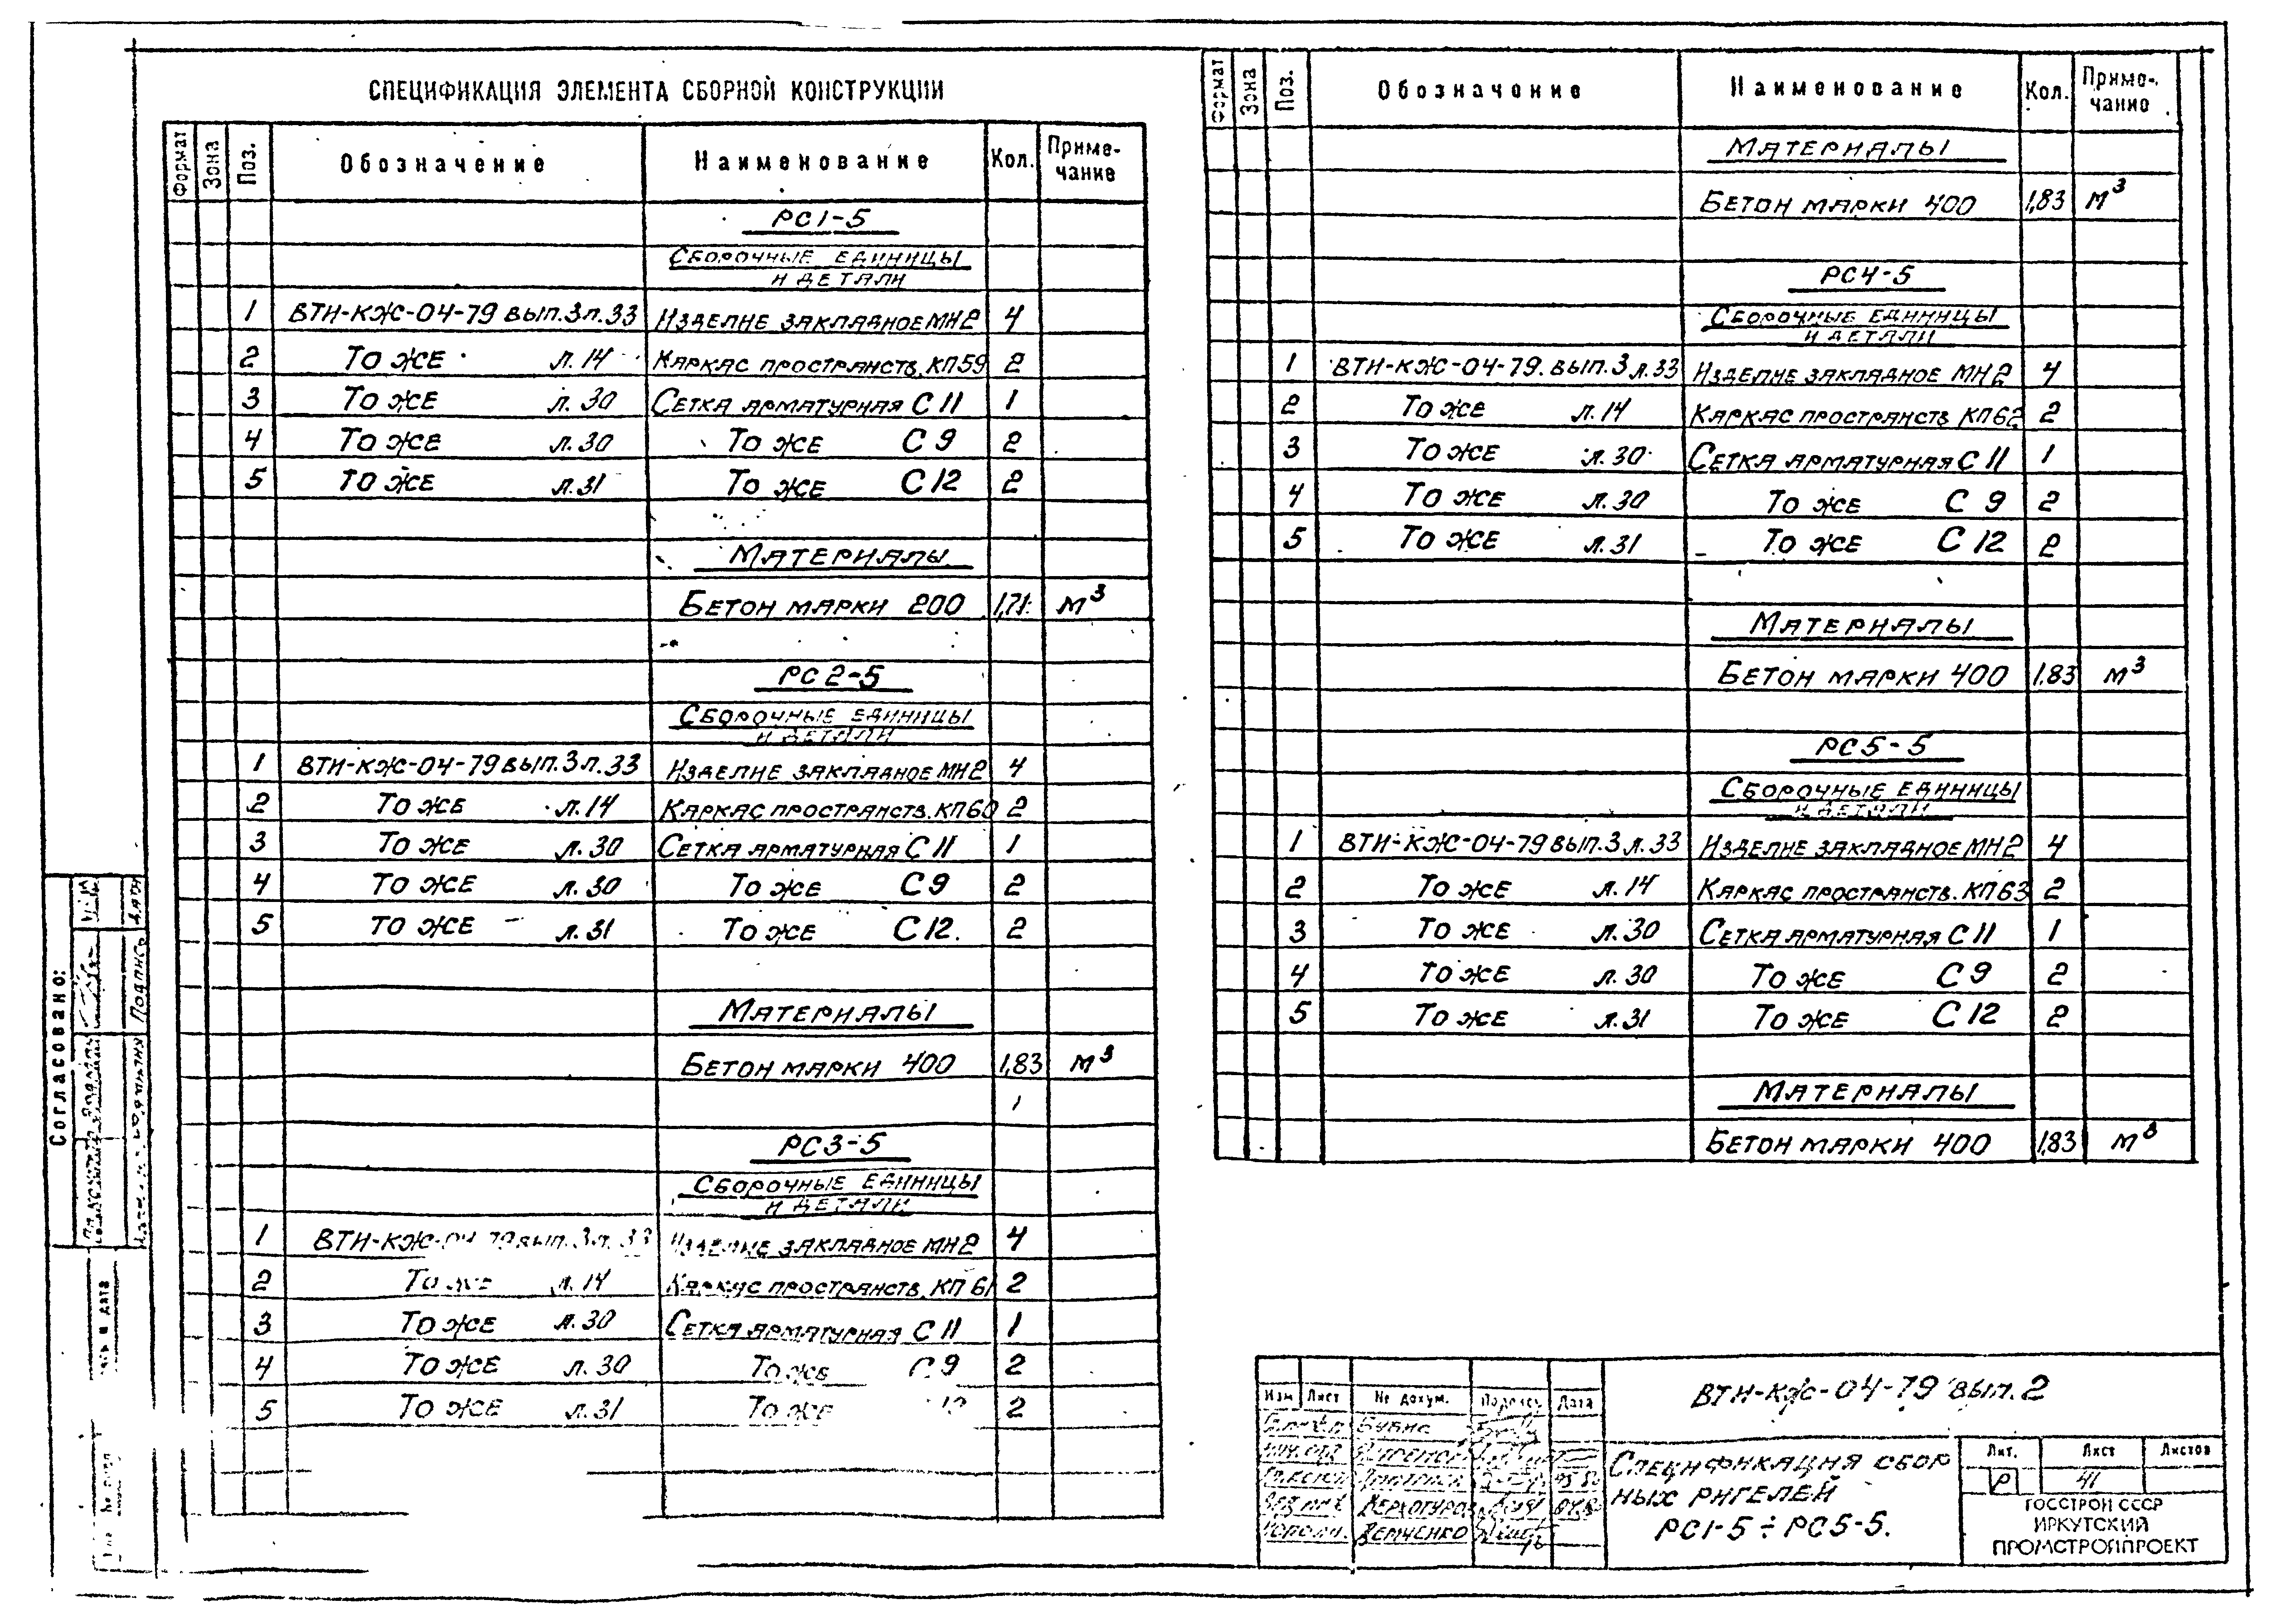 СПЕЦИФИКАЦИЯ ЭЛЕМЕНТА СБОРНОЙ КОНСТРУКЦИИ
Формат Зона Поз. Обозначение Наименование Кол. Приме-
чание
РС1-5
СБОРОЧНЫЕ ЕДИНИЦЫ
И ДЕТАЛИ
1 ВТИ-КЖ-04-79 ВЫП.3 Л.33 ИЗДЕЛИЕ ЗАКЛАДНОЕ МН2 4
2 ТО ЖЕ Л.14 КАРКАС ПРОСТРАНСТВ. КП59 2
3 ТО ЖЕ Л.30 СЕТКА АРМАТУРНАЯ С11 1
4 ТО ЖЕ Л.30 ТО ЖЕ С9 2
5 ТО ЖЕ Л.31 ТО ЖЕ С12 2
МАТЕРИАЛЫ
БЕТОН МАРКИ 200 1,71 М³
РС2-5
СБОРОЧНЫЕ ЕДИНИЦЫ
И ДЕТАЛИ
1 ВТИ-КЖ-04-79 ВЫП.3 Л.33 ИЗДЕЛИЕ ЗАКЛАДНОЕ МН2 4
2 ТО ЖЕ Л.14 КАРКАС ПРОСТРАНСТВ. КП60 2
3 ТО ЖЕ Л.30 СЕТКА АРМАТУРНАЯ С11 1
4 ТО ЖЕ Л.30 ТО ЖЕ С9 2
5 ТО ЖЕ Л.31 ТО ЖЕ С12. 2
МАТЕРИАЛЫ
БЕТОН МАРКИ 400 1,83 М³
РС3-5
СБОРОЧНЫЕ ЕДИНИЦЫ
И ДЕТАЛИ
1 ВТИ-КЖ-04-79 ВЫП.3 Л.33 ИЗДЕЛИЕ ЗАКЛАДНОЕ МН2 4
2 ТО ЖЕ Л.14 КАРКАС ПРОСТРАНСТВ. КП61 2
3 ТО ЖЕ Л.30 СЕТКА АРМАТУРНАЯ С11 1
4 ТО ЖЕ Л.30 ТО ЖЕ С9 2
5 ТО ЖЕ Л.31 ТО ЖЕ 12 2
Формат Зона Поз. Обозначение Наименование Кол. Приме-
чание
МАТЕРИАЛЫ
БЕТОН МАРКИ 400 1,83 М³
РС4-5
СБОРОЧНЫЕ ЕДИНИЦЫ
И ДЕТАЛИ
1 ВТИ-КЖ-04-79. ВЫП.3 Л.33 ИЗДЕЛИЕ ЗАКЛАДНОЕ МН2 4
2 ТО ЖЕ Л.14 КАРКАС ПРОСТРАНСТВ КП62 2
3 ТО ЖЕ Л.30 СЕТКА АРМАТУРНАЯ С11 1
4 ТО ЖЕ Л.30 ТО ЖЕ С 9 2
5 ТО ЖЕ Л.31 ТО ЖЕ С12 2
МАТЕРИАЛЫ
БЕТОН МАРКИ 400 1.83 М³
РС5-5
СБОРОЧНЫЕ ЕДИНИЦЫ
И ДЕТАЛИ
1 ВТИ-КЖ-04-79 ВЫП.3 Л.33 ИЗДЕЛИЕ ЗАКЛАДНОЕ МН2 4
2 ТО ЖЕ Л.14 КАРКАС ПРОСТРАНСТВ. КП63 2
3 ТО ЖЕ Л.30 СЕТКА АРМАТУРНАЯ С11 1
4 ТО ЖЕ Л.30 ТО ЖЕ С9 2
5 ТО ЖЕ Л.31 ТО ЖЕ С12 2
МАТЕРИАЛЫ
БЕТОН МАРКИ 400 1,83 М³
Согласовано:
Подпись
Изм Лист № докум. Подпись Дата
Бубис
ДЕМЧЕНКО
ВТИ-КЖ-04-79 ВЫП.2
СПЕЦИФИКАЦИЯ СБОР
НЫХ РИГЕЛЕЙ
РС1-5 ÷ РС5-5.
Лит. Лист Листов
Р 41
ГОССТРОЙ СССР
ИРКУТСКИЙ
ПРОМСТРОЙПРОЕКТ